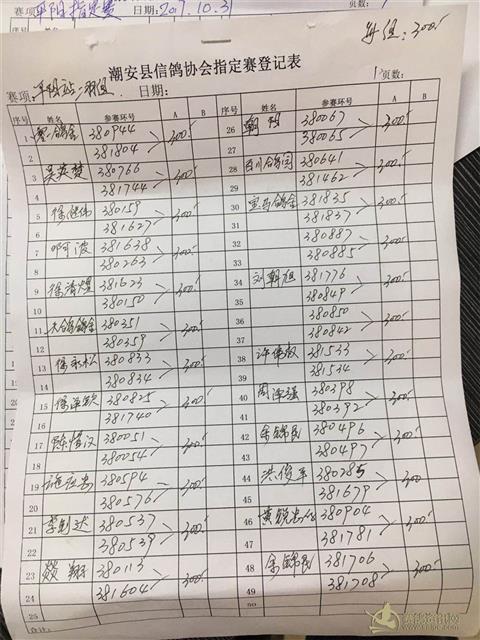 平阳指定赛 日期: 2017.10.3 页数:
每组: 300.
潮安县信鸽协会指定赛登记表
赛项: 平阳站二羽组 日期: 页数:
序号 姓名 参赛环号 A B 序号 姓名 参赛环号 A B
1 鸽舍 380944 300 26 朝阳 380067 300
2 381804 27 380065
3 吴英楚 380766 300 28 百川 380641 300
4 381744 29 381462
5 徐 380159 300 30 宝马鸽舍 381835 300
6 381627 31 381837
7 邓可波 381638 300 32 380887 300
8 380263 33 380885
9 徐清煌 381623 300 34 刘朝旭 381776 300
10 380150 35 380849
11 鸽舍 380351 300 36 380850 300
12 380359 37 380842
13 徐 松 380833 300 38 许伟 381533 300
14 380834 39 381534
15 徐泽 380825 300 40 周泽强 380398 300
16 381740 41 380392
17 陈 汉 380051 300 42 余锦民 380496 300
18 380054 43 380497
19 380594 300 44 洪俊平 380285 300
20 380576 45 381679
21 李 达 380537 300 46 黄锐 380904 300
22 380539 47 381781
23 翔 380113 300 48 余锦民 381706 300
24 381604 49 381708
25 50
合计: